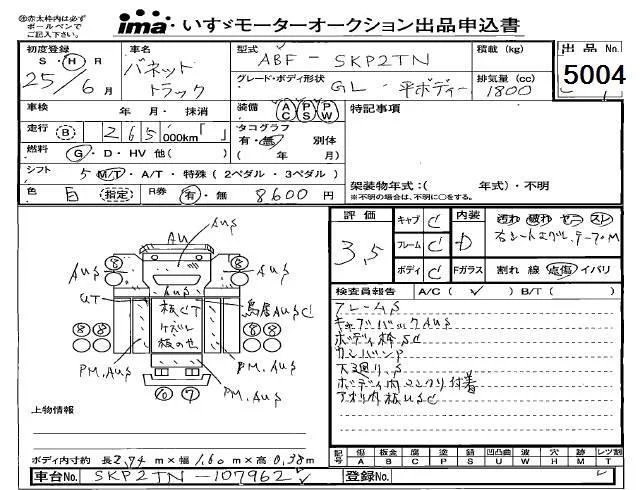 ㊟赤太枠内は必ずボールペンでご記入下さい。
ima いすゞモーターオークション出品申込書
初度登録 車名 型式 積載(kg) 出品No.
S・H・R バネット ABF-SKP2TN 5004
25年6月 トラック グレード・ボディ形状 排気量(cc)
GL・平ボディー 1800
車検 年 月・抹消 装備 AC PS PW 特記事項
走行 B 265,000km「 」 タコグラフ
有・無 別体
燃料 G・D・HV 他( ) ( 年 月)
シフト 5 M/T・A/T・特殊(2ペダル・3ペダル) 架装物年式:( 年式)・不明
色 白 指定 R券 有・無 8600円 ※不明の場合は、不明に○をする。
評価 キャブ C 内装 汚れ 破れ ゼニ スレ
3.5 フレーム C D
ボディ C Fガラス 割れ 線 点傷 イバリ
検査員報告 A/C( ✓ ) B/T( )
フレームS
キャブバックAUS
ボディ枠SC
カンバンP
下廻りS
ボディ内コンクリ付着
アオリ内板USC
AUS
AU
8 8
AUS AUS
AUS
GT 板CT 鳥居AUSC
8 8 ケズレ 8 8
板のせ
PM.AUS PM.AUS
PM.AUS
6 7
上物情報
ボディ内寸約 長2.74m×幅1.60m×高0.38m
記号 傷 板金 腐 塗 錆 凹凸曲 波 穴 跡 レツ割
A B C P S U W H M T
車台No. SKP2TN-107962 登録No.